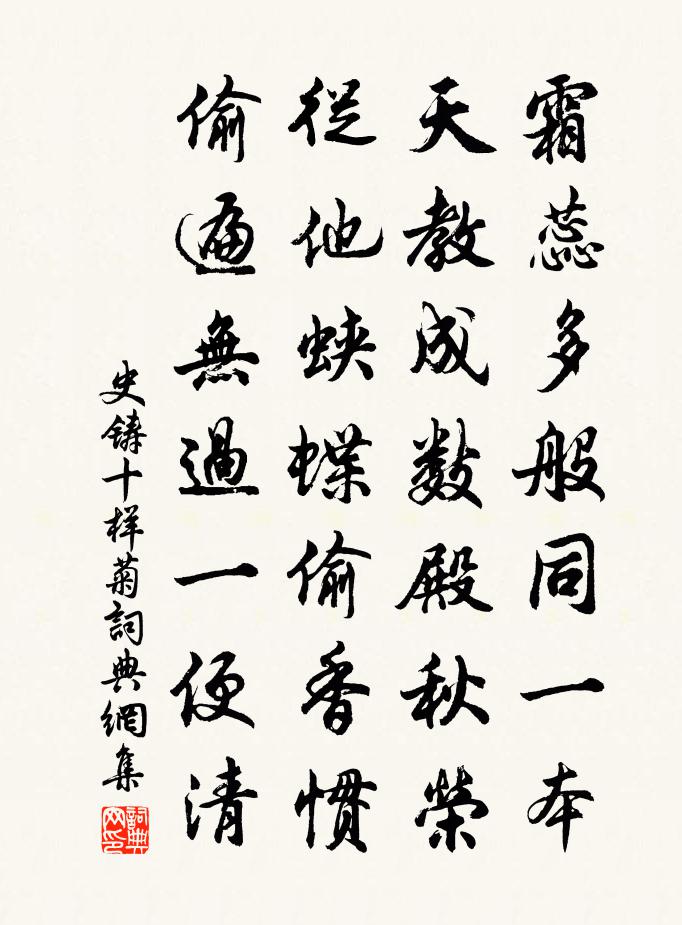 霜蕊多般同一本
天教成数殿秋榮
從他蛺蝶偷香慣
偷遍無過一便清
史鑄十样菊詞典網集
詞典网印